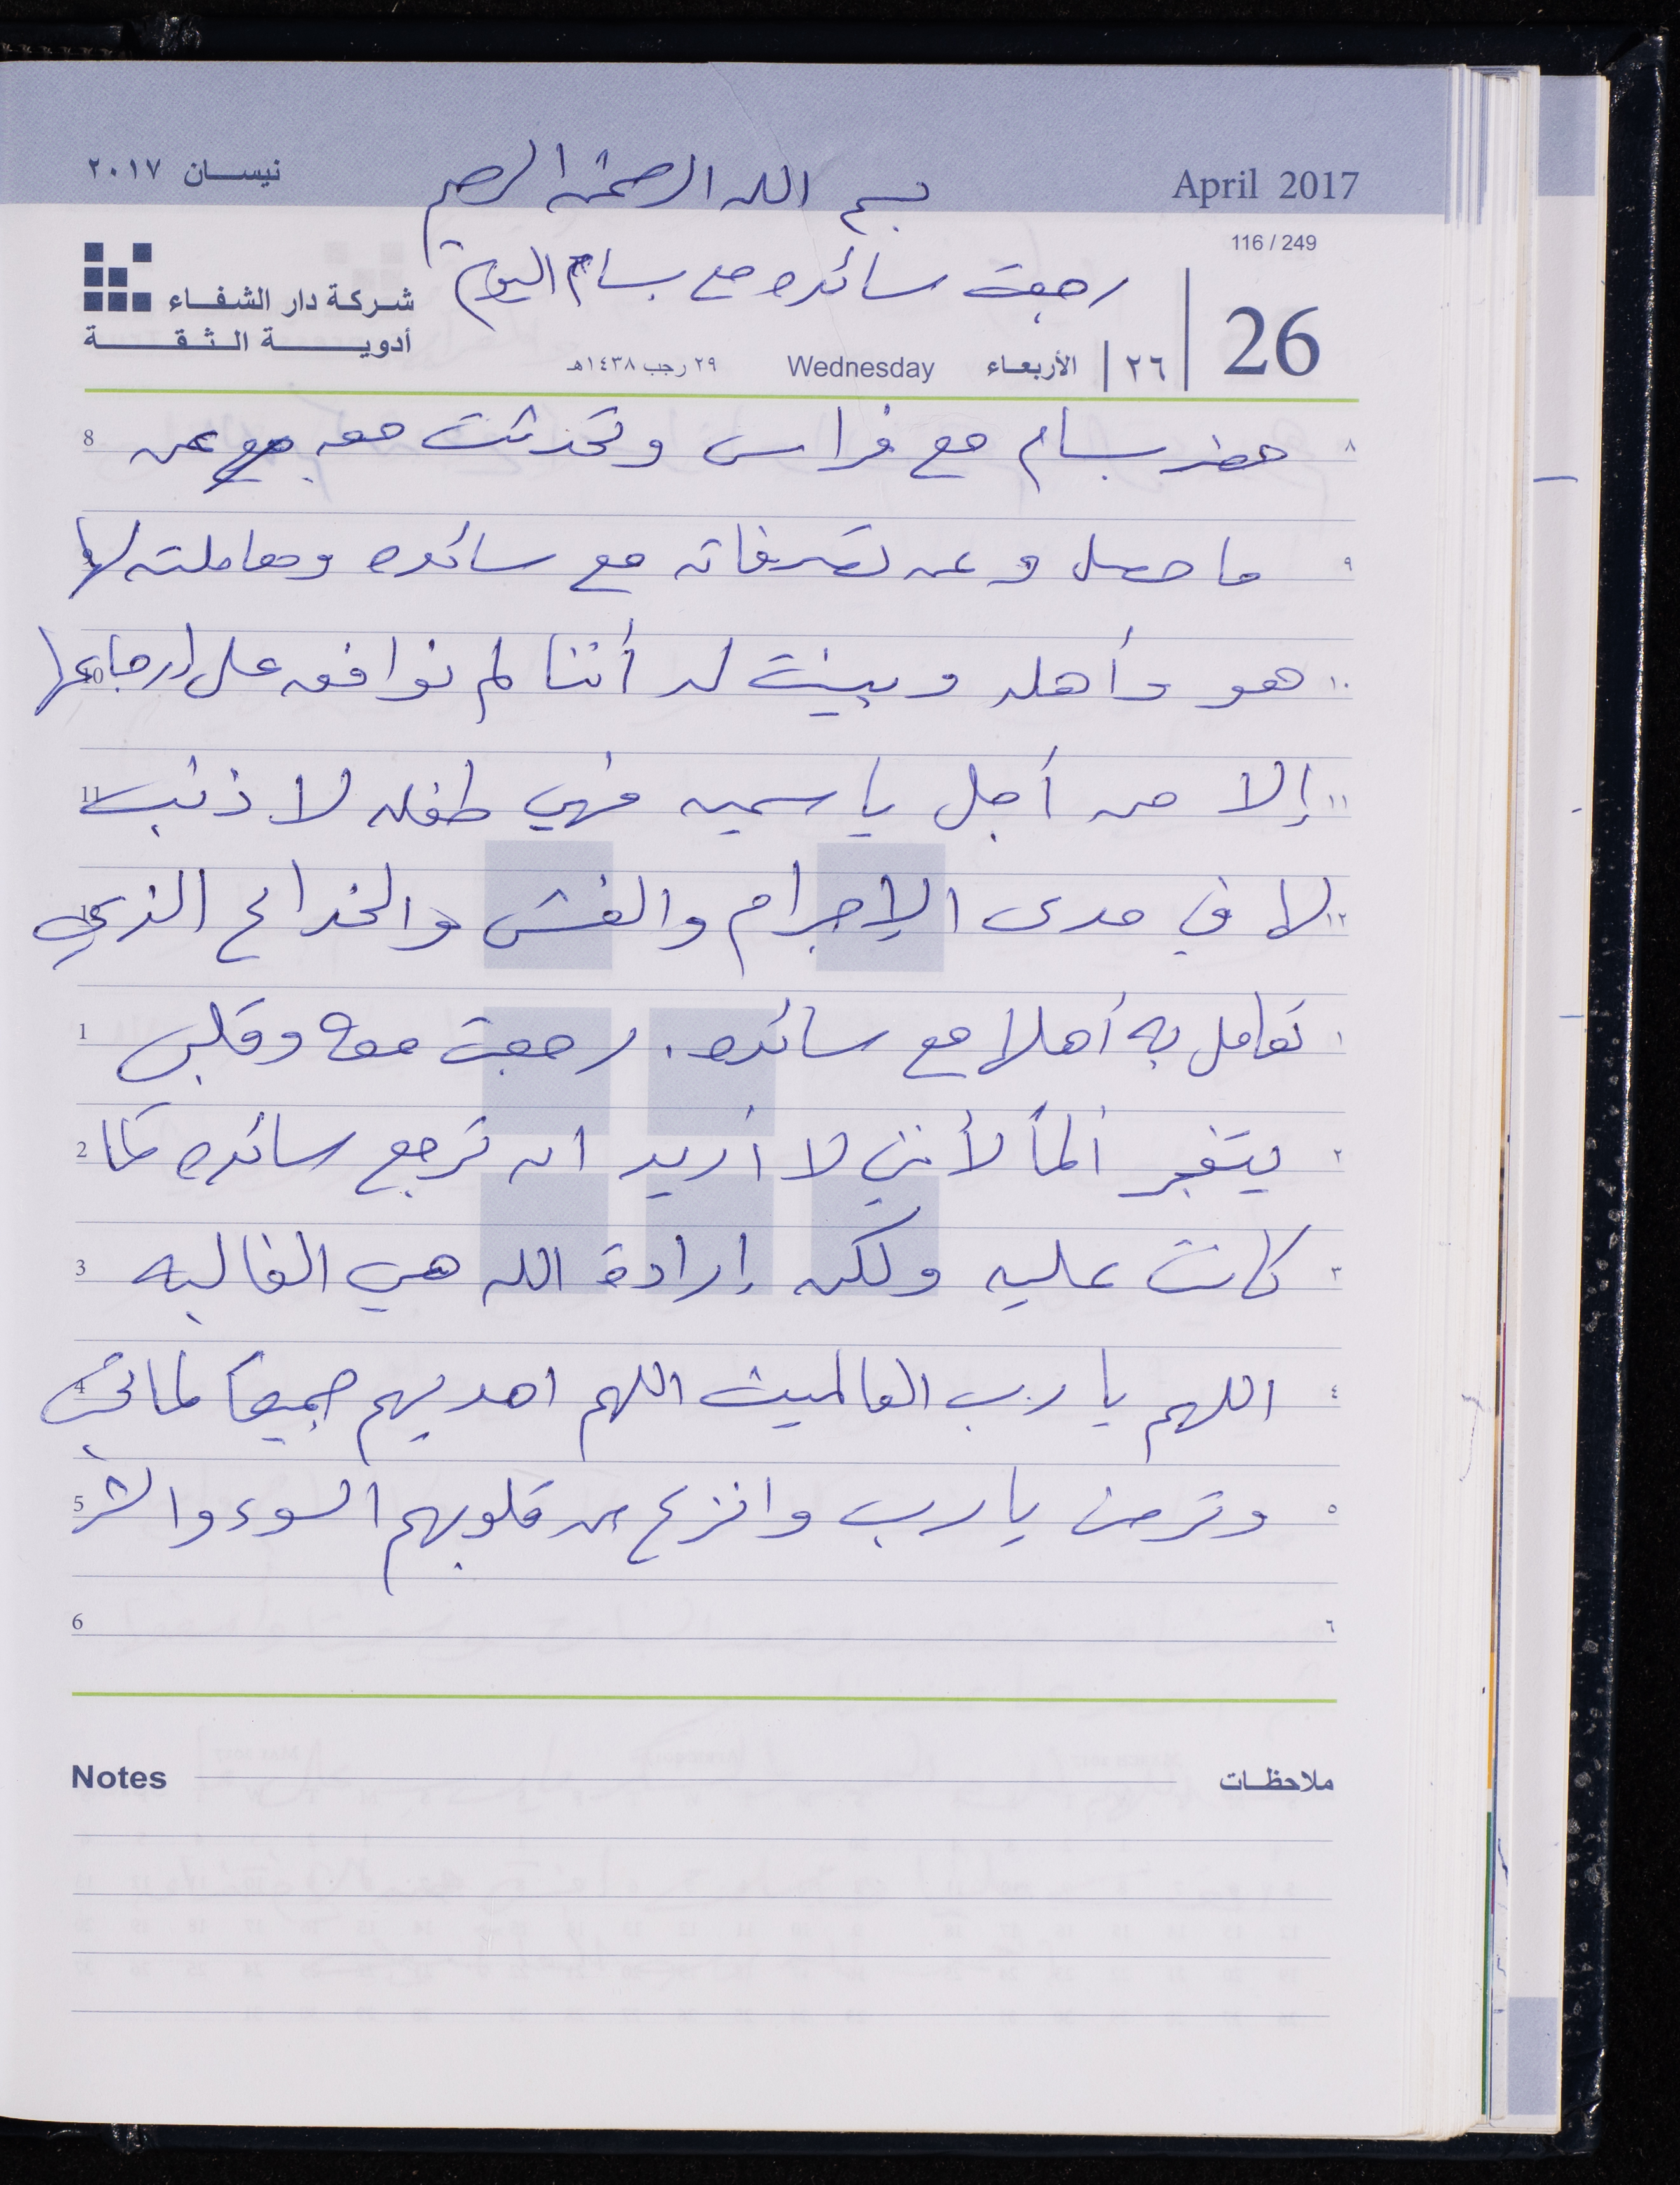 نيسان ٢٠١٧ بسم الله الرحمن الرحيم April 2017
116 / 249
رجعت سائده مع بسام اليوم
شركة دار الشفاء
أدوية الثقة
26 ٢٦ الأربعاء Wednesday ٢٩ رجب ١٤٣٨هـ
8 حضر بسام مع فراس وتحدثت معه عن ٨
ما حصل وعن تصرفاته مع سائده ومعاملته لها ٩
10 هو وأهله وبينت له أننا لم نوافق على إرجاعها ١٠
11 إلا من أجل ياسمين فهي طفله لا ذنب ١١
لها في مدى الإجرام والغش والخداع الذي ١٢
1 تعامل به أهلها مع سائده. رجعت معه وقلبي ١
2 يتفجر ألماً لأنني لا أريد ان ترجع سائده لما ٢
3 كانت عليه ولكن إرادة الله هي الغالبه ٣
4 اللهم يا رب العالمين اللهم اهديهم جميعاً لما تحب ٤
5 وترضى يا رب وانزع من قلوبهم السوء والشر ٥
6 ٦
Notes ملاحظات